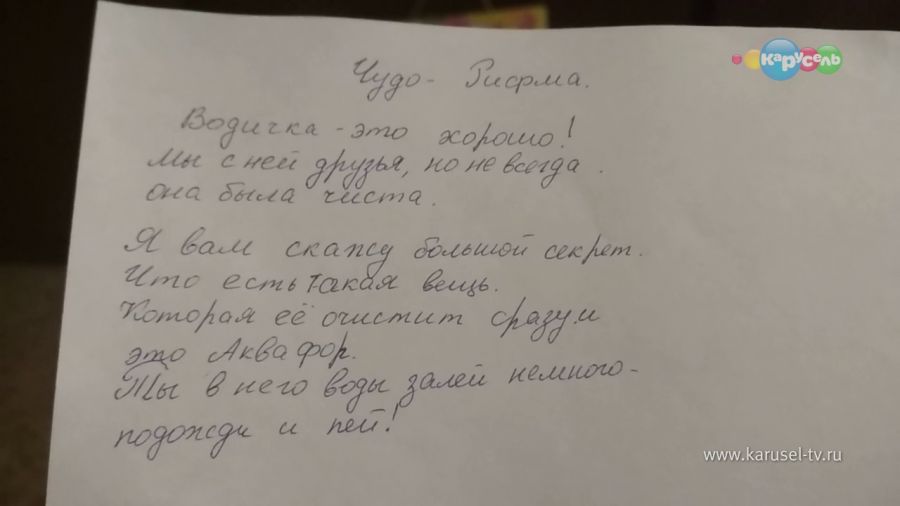 Карусель
Чудо - Рифма.
Водичка - это хорошо!
Мы с ней друзья, но не всегда.
она была чиста.
Я вам скажу большой секрет.
Что есть такая вещь.
Которая её очистит сразу и
это Аквафор.
Ты в него воды залей немного-
подожди и пей!
www.karusel-tv.ru